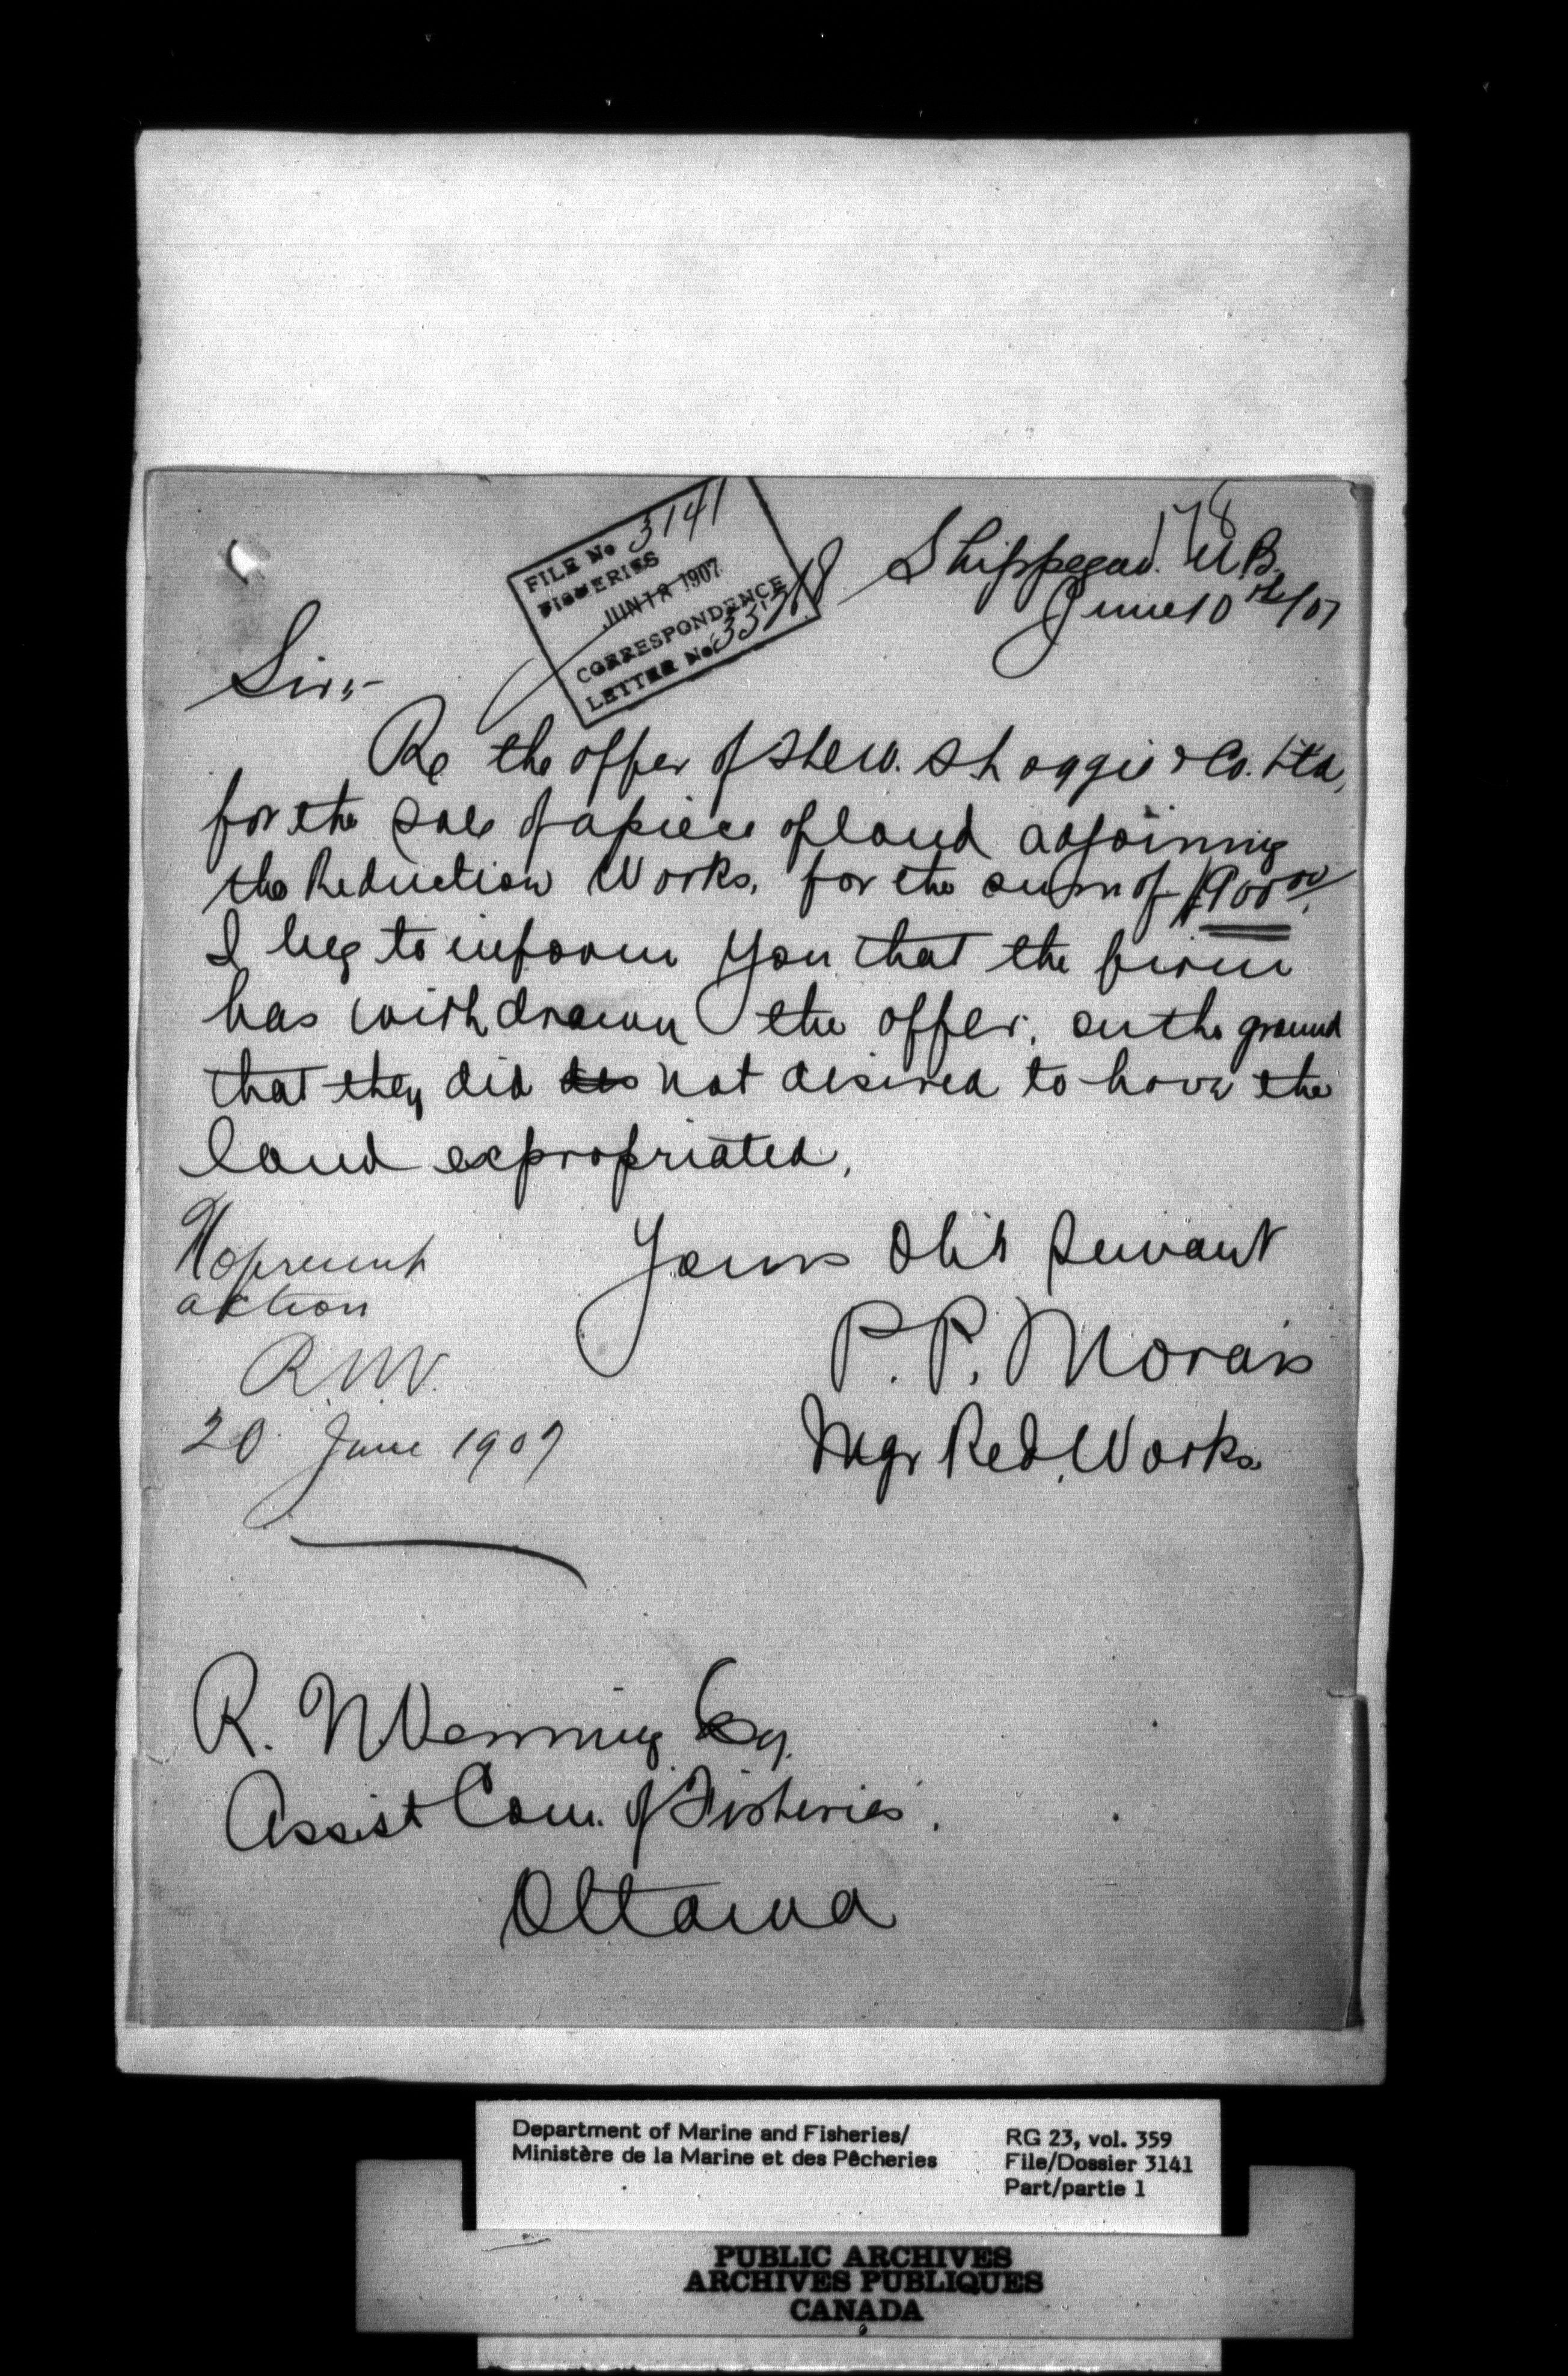 178
FILE No 3141
FISHERIES
JUN 18 1907
CORRESPONDENCE
LETTER No.
Shippegan. N.B.
June 10th/07
Sir:-
Re the offer of The W. S. Loggie & Co. Ltd,
for the sale of a piece of land adjoining
the Reduction Works, for the sum of $900.00,
I beg to inform you that the firm
has withdrawn the offer, on the ground
that they did des not desired to have the
land expropriated.
Yours Obt Servant
P. P. Morais
Mgr Red. Works
No present
action
R.N.V.
20 June 1907
R. N. Venning Esq.
Assist Com. of Fisheries.
Ottawa
Department of Marine and Fisheries/
Ministère de la Marine et des Pêcheries
RG 23, vol. 359
File/Dossier 3141
Part/partie 1
PUBLIC ARCHIVES
ARCHIVES PUBLIQUES
CANADA